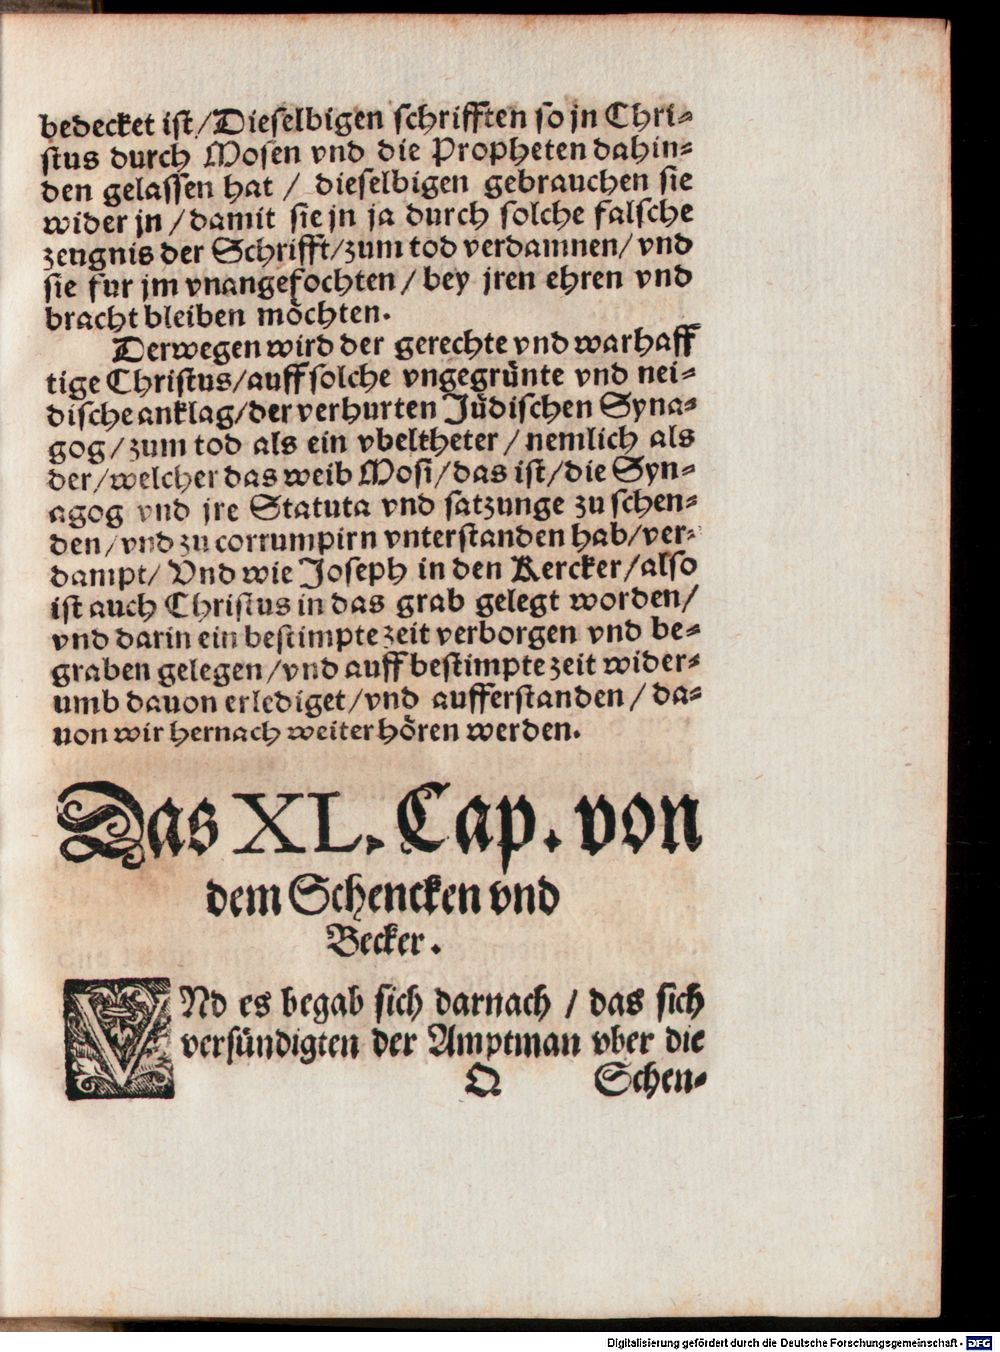 bedecket ist/Dieselbigen schrifften so jn Chri-
stus durch Mosen vnd die Propheten dahin-
den gelassen hat / dieselbigen gebrauchen sie
wider jn /damit sie jn ja durch solche falsche
zeugnis der Schrifft/zum tod verdamnen/ vnd
sie fur jm vnangefochten / bey jren ehren vnd
bracht bleiben möchten.
Derwegen wird der gerechte vnd warhaff
tige Christus/auff solche vngegrünte vnd nei-
dische anklag/der verhurten Jüdischen Syna-
gog /zum tod als ein vbeltheter / nemlich als
der/welcher das weib Mosi/das ist/die Syn-
agog vnd jre Statuta vnd satzunge zu schen-
den/vnd zu corrumpirn vnterstanden hab/ver-
dampt/ Vnd wie Joseph in den Kercker/also
ist auch Christus in das grab gelegt worden/
vnd darin ein bestimpte zeit verborgen vnd be-
graben gelegen/vnd auff bestimpte zeit wider-
umb dauon erlediget/vnd aufferstanden / da-
uon wir hernach weiter hören werden.
Das XL. Cap. von
dem Schencken vnd
Becker.
VNd es begab sich darnach / das sich
versündigten der Amptman vber die
Q Schen-
Digitalisierung gefördert durch die Deutsche Forschungsgemeinschaft - DFG